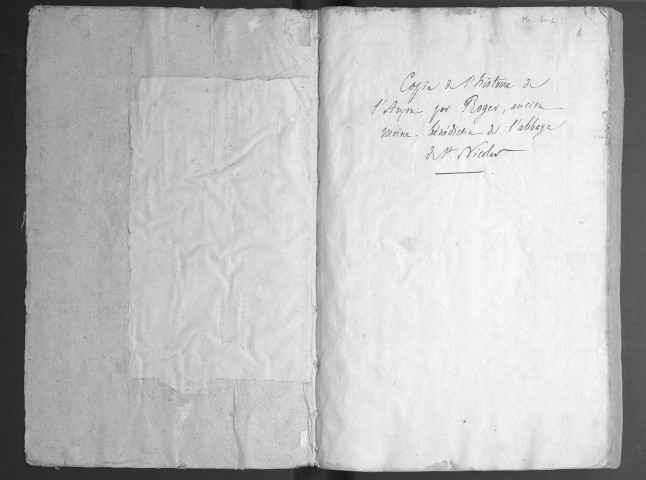 A
Copie de l'histoire de
l'Anjou par Roger, ancien
moine bénédictin de l'abbaye
de St Nicolas